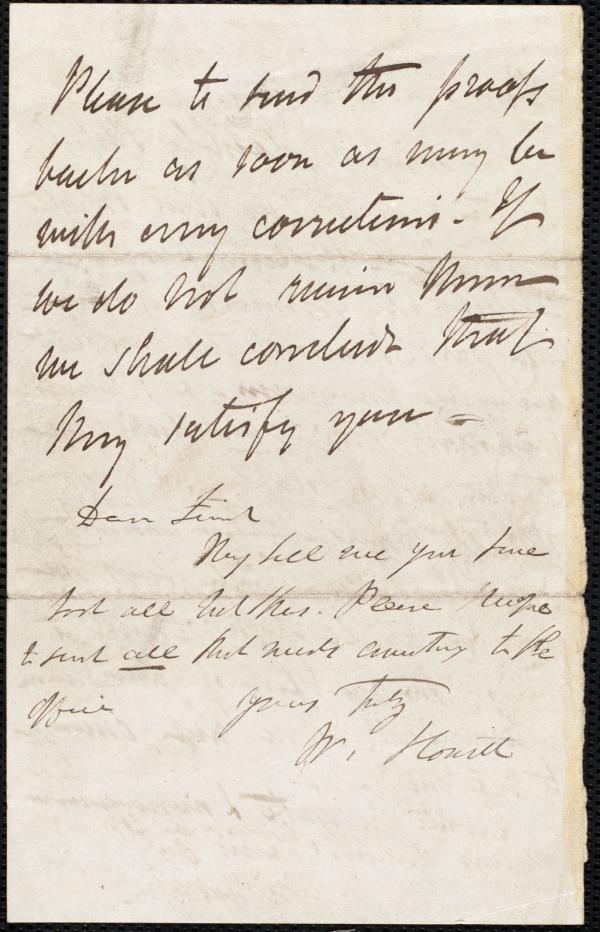 Please to send the proofs
back as soon as may be
with any corrections - If
we do not receive them
we shall conclude that
they satisfy you -
Dear Friend
They tell me you have
had all but this. Please
to send all that needs correcting to the
Office yours truly
W. Howitt